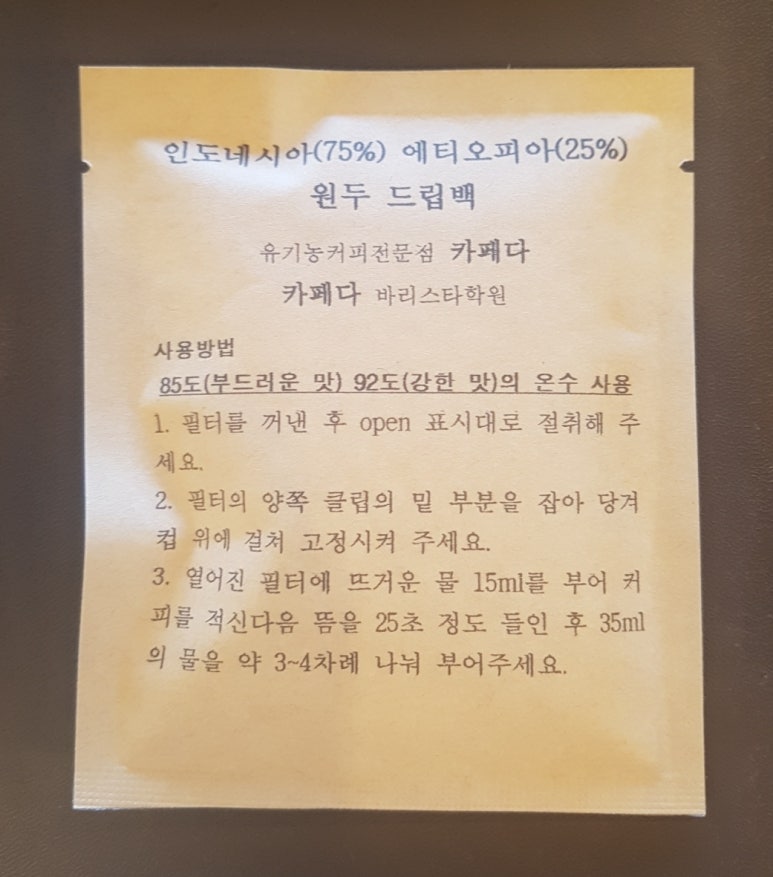 인도네시아(75%) 에티오피아(25%)
원두 드립백
유기농커피전문점 카페다
카페다 바리스타학원
사용방법
85도(부드러운 맛) 92도(강한 맛)의 온수 사용
1. 필터를 꺼낸 후 open 표시대로 절취해 주
세요.
2. 필터의 양쪽 클립의 밑 부분을 잡아 당겨
컵 위에 걸쳐 고정시켜 주세요.
3. 열어진 필터에 뜨거운 물 15ml를 부어 커
피를 적신다음 뜸을 25초 정도 들인 후 35ml
의 물을 약 3~4차례 나눠 부어주세요.